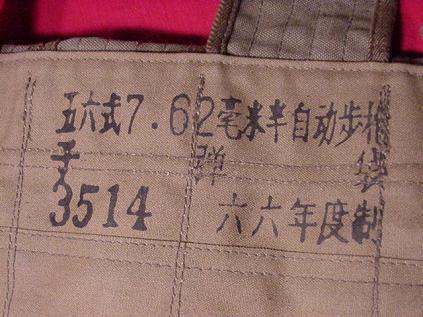 五六式7.62毫米半自动步枪
子弹袋
3514 六六年度制